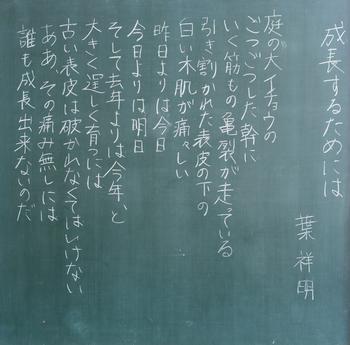 成長するためには
葉祥明
庭の大イチョウの
ごつごつした幹に
いく筋もの亀裂が走っている
引き割かれた表皮の下の
白い木肌が痛々しい
昨日よりは今日
今日よりは明日
そして去年よりは今年、と
大きく逞しく育つには
古い表皮は破かれなくてはいけない
ああ、その痛み無しには
誰も成長出来ないのだ